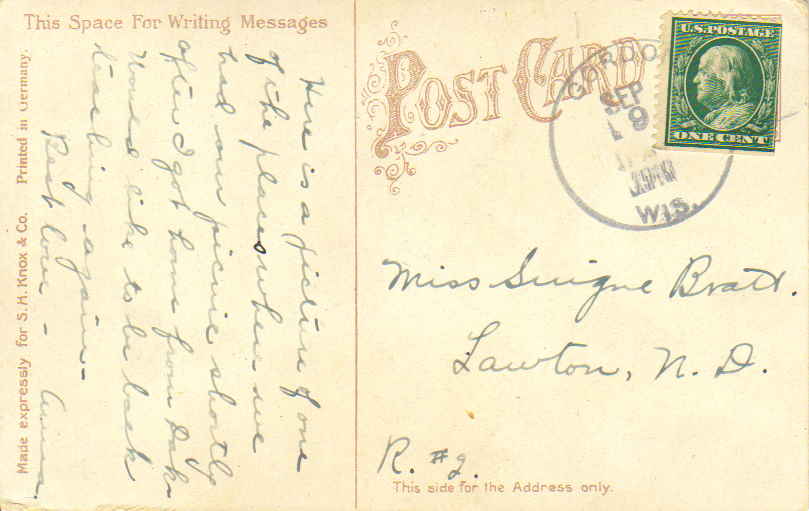 This Space For Writing Messages
Here is a picture of one
of the places where we
had our picnic shortly
after I got home from Dak.
Would like to be back
teaching again -
Best love - Anna.
Made expressly for S. H. Knox & Co. Printed in Germany.
POST CARD
GORDO
SEP
9
WIS.
U.S. POSTAGE
ONE CENT
Miss Signe Bratt.
Lawton, N. D.
R. #2.
This side for the Address only.